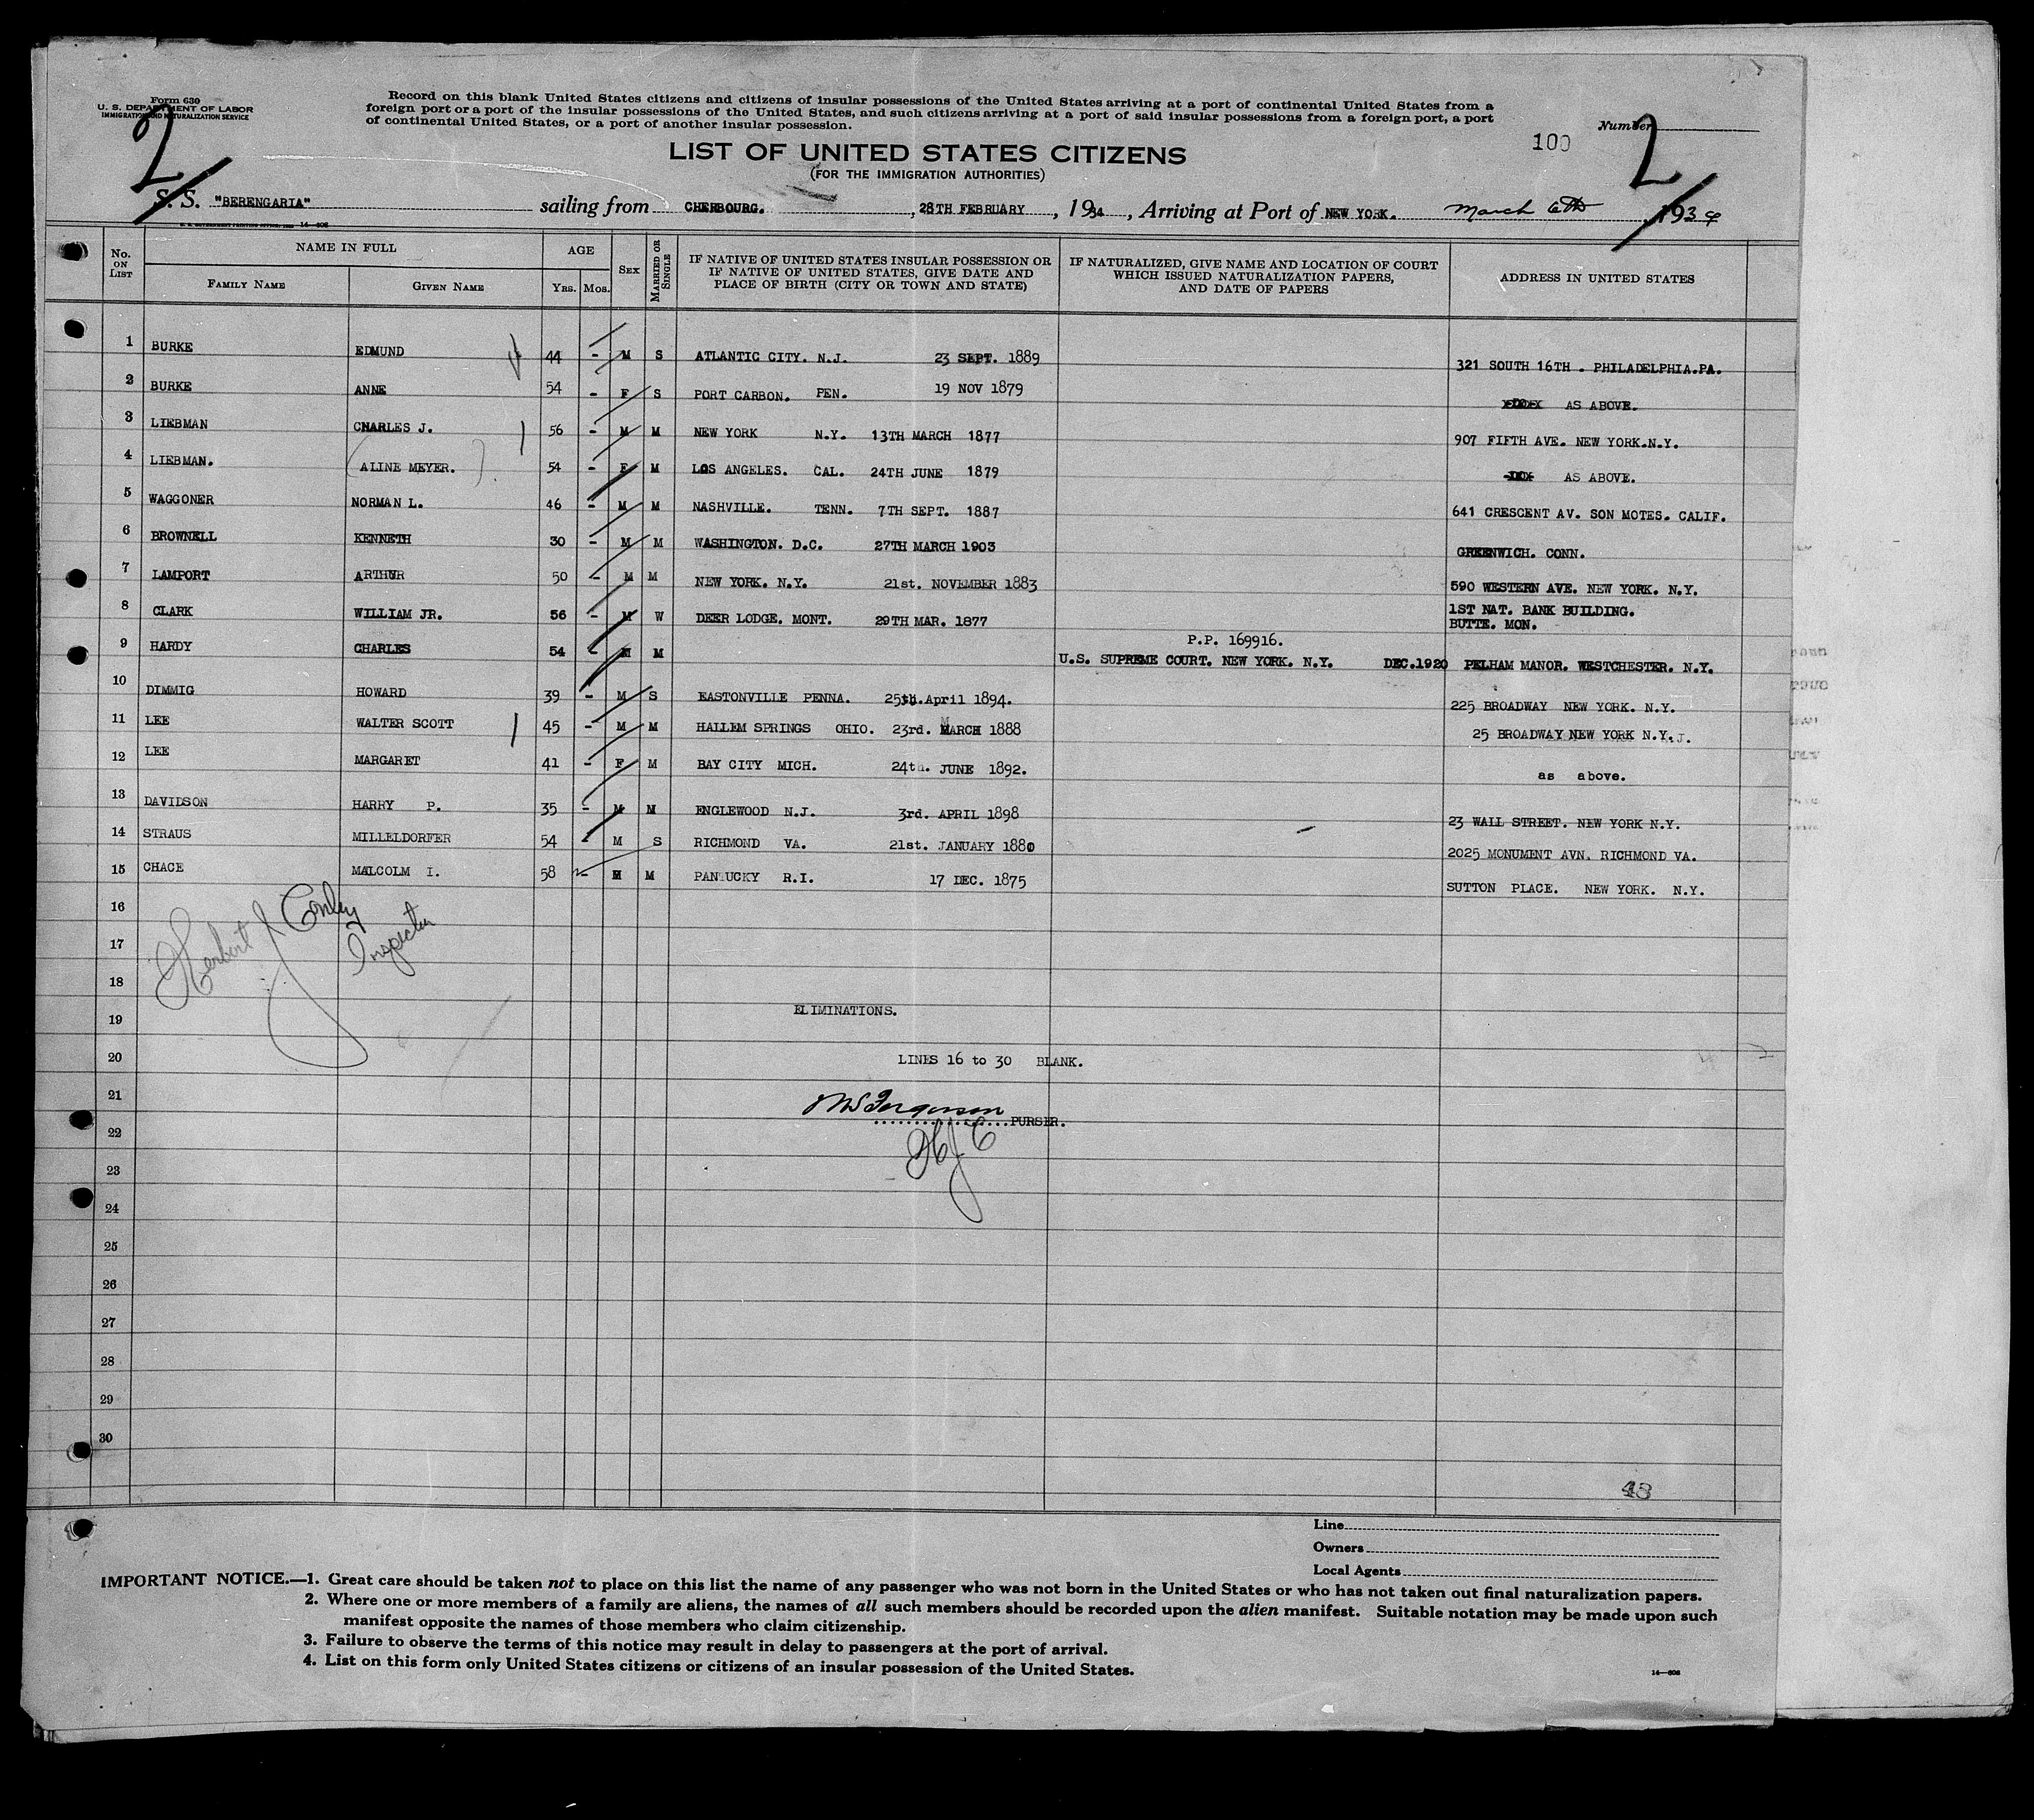 Form 630
U. S. DEPARTMENT OF LABOR
IMMIGRATION AND NATURALIZATION SERVICE
Record on this blank United States citizens and citizens of insular possessions of the United States arriving at a port of continental United States from a
foreign port or a port of the insular possessions of the United States, and such citizens arriving at a port of said insular possessions from a foreign port, a port
of continental United States, or a port of another insular possession.
Number
100
2
2
LIST OF UNITED STATES CITIZENS
(FOR THE IMMIGRATION AUTHORITIES)
S. S. "BERENGARIA" sailing from CHERBOURG. , 28TH FEBRUARY , 1934 , Arriving at Port of NEW YORK. March 6th , 1934
14—608
No. ON LIST NAME IN FULL AGE SEX MARRIED OR SINGLE IF NATIVE OF UNITED STATES INSULAR POSSESSION OR IF NATIVE OF UNITED STATES, GIVE DATE AND PLACE OF BIRTH (CITY OR TOWN AND STATE) IF NATURALIZED, GIVE NAME AND LOCATION OF COURT WHICH ISSUED NATURALIZATION PAPERS, AND DATE OF PAPERS ADDRESS IN UNITED STATES
FAMILY NAME GIVEN NAME YRS. MOS.
1 BURKE EDMUND 44 - M S ATLANTIC CITY. N.J. 23 SEPT. 1889 321 SOUTH 16TH . PHILADELPHIA.PA.
2 BURKE ANNE 54 - F S PORT CARBON. PEN. 19 NOV 1879 AS ABOVE.
3 LIEBMAN CHARLES J. 56 - M M NEW YORK N.Y. 13TH MARCH 1877 907 FIFTH AVE. NEW YORK.N.Y.
4 LIEBMAN. (ALINE MEYER.) 54 - F M LOS ANGELES. CAL. 24TH JUNE 1879 AS ABOVE.
5 WAGGONER NORMAN L. 46 - M M NASHVILLE. TENN. 7TH SEPT. 1887 641 CRESCENT AV. SON MOTES. CALIF.
6 BROWNELL KENNETH 30 - M M WASHINGTON. D.C. 27TH MARCH 1903 GREENWICH. CONN.
7 LAMPORT ARTHUR 50 - M M NEW YORK. N.Y. 21st. NOVEMBER 1883 590 WESTERN AVE. NEW YORK. N.Y.
8 CLARK WILLIAM JR. 56 - M W DEER LODGE. MONT. 29TH MAR. 1877 1ST NAT. BANK BUILDING.
BUTTE. MON.
P.P. 169916.
9 HARDY CHARLES 54 - M M U.S. SUPREME COURT. NEW YORK. N.Y. DEC.1920 PELHAM MANOR. WESTCHESTER. N.Y.
10 DIMMIG HOWARD 39 - M S EASTONVILLE PENNA. 25th.April 1894. 225 BROADWAY NEW YORK. N.Y.
11 LEE WALTER SCOTT 45 - M M HALLEM SPRINGS OHIO. 23rd. MARCH 1888 25 BROADWAY NEW YORK N.Y.
12 LEE MARGARET 41 - F M BAY CITY MICH. 24th. JUNE 1892. as above.
13 DAVIDSON HARRY P. 35 - M M ENGLEWOOD N.J. 3rd. APRIL 1898 23 WALL STREET. NEW YORK N.Y.
14 STRAUS MILLELDORFER 54 - M S RICHMOND VA. 21st. JANUARY 1880 2025 MONUMENT AVN. RICHMOND VA.
15 CHACE MALCOLM I. 58 - M M PANTUCKY R.I. 17 DEC. 1875 SUTTON PLACE. NEW YORK. N.Y.
16
Herbert J Conley
Inspector
17
18
19 ELIMINATIONS.
20 LINES 16 to 30 BLANK.
21
Ferguson
PURSER.
22
HJC
23
24
25
26
27
28
29
30
43
Line
Owners
Local Agents
IMPORTANT NOTICE.—1. Great care should be taken not to place on this list the name of any passenger who was not born in the United States or who has not taken out final naturalization papers.
2. Where one or more members of a family are aliens, the names of all such members should be recorded upon the alien manifest. Suitable notation may be made upon such
manifest opposite the names of those members who claim citizenship.
3. Failure to observe the terms of this notice may result in delay to passengers at the port of arrival.
4. List on this form only United States citizens or citizens of an insular possession of the United States.
14—608